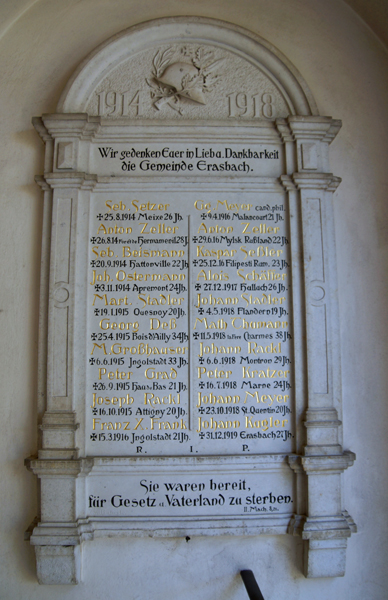 1914 1918
Wir gedenken Euer in Lieb u. Dankbarkeit
die Gemeinde Erasbach.
Seb. Setzer
✠ 25.8.1914 Meixe 26 Jh.
Anton Zeller
✠ 26.8.14 Hernumenil 28 J.
Seb. Beismann
✠ 20.9.1914 Hattonville 22 Jh.
Joh. Ostermann
✠ 3.11.1914 Apremont 24 Jh.
Mart. Stadler
✠ 19.1.1915 Quesnoy 20 Jh.
Georg Deß
✠ 25.4.1915 Bois d'Ailly 34 Jh.
M. Großhauser
✠ 6.6.1915 Ingolstadt 33 Jh.
Peter Grad
✠ 26.9.1915 Hau. u. Bas 21 Jh.
Joseph Räckl
✠ 16.10.1915 Attigny 20 Jh.
Franz X. Frank
✠ 15.3.1916 Ingolstadt 21 Jh.
Gg. Meyer cand. phil.
✠ 9.4.1916 Malancourt 21 Jh.
Anton Zeller
✠ 29.6.16 Mylsk Rußland 22 Jh.
Kaspar Seßler
✠ 25.12.16 Filipesti Rum. 23 Jh.
Alois Schäller
✠ 27.12.1917 Hallach 26 Jh.
Johann Stadler
✠ 4.5.1918 Flandern 19 Jh.
Math.
✠ 11.5.1918 Charmes 38 Jh.
Johann Räckl
✠ 6.6.1918 29 Jh.
Peter Kratzer
✠ 16.7.1918 Marne 24 Jh.
Johann Meyer
✠ 23.10.1918 St. Quentin 20 Jh.
Johann Kugler
✠ 31.12.1919 Erasbach 27 Jh.
R. I. P.
Sie waren bereit,
für Gesetz u. Vaterland zu sterben.
II. Mach.